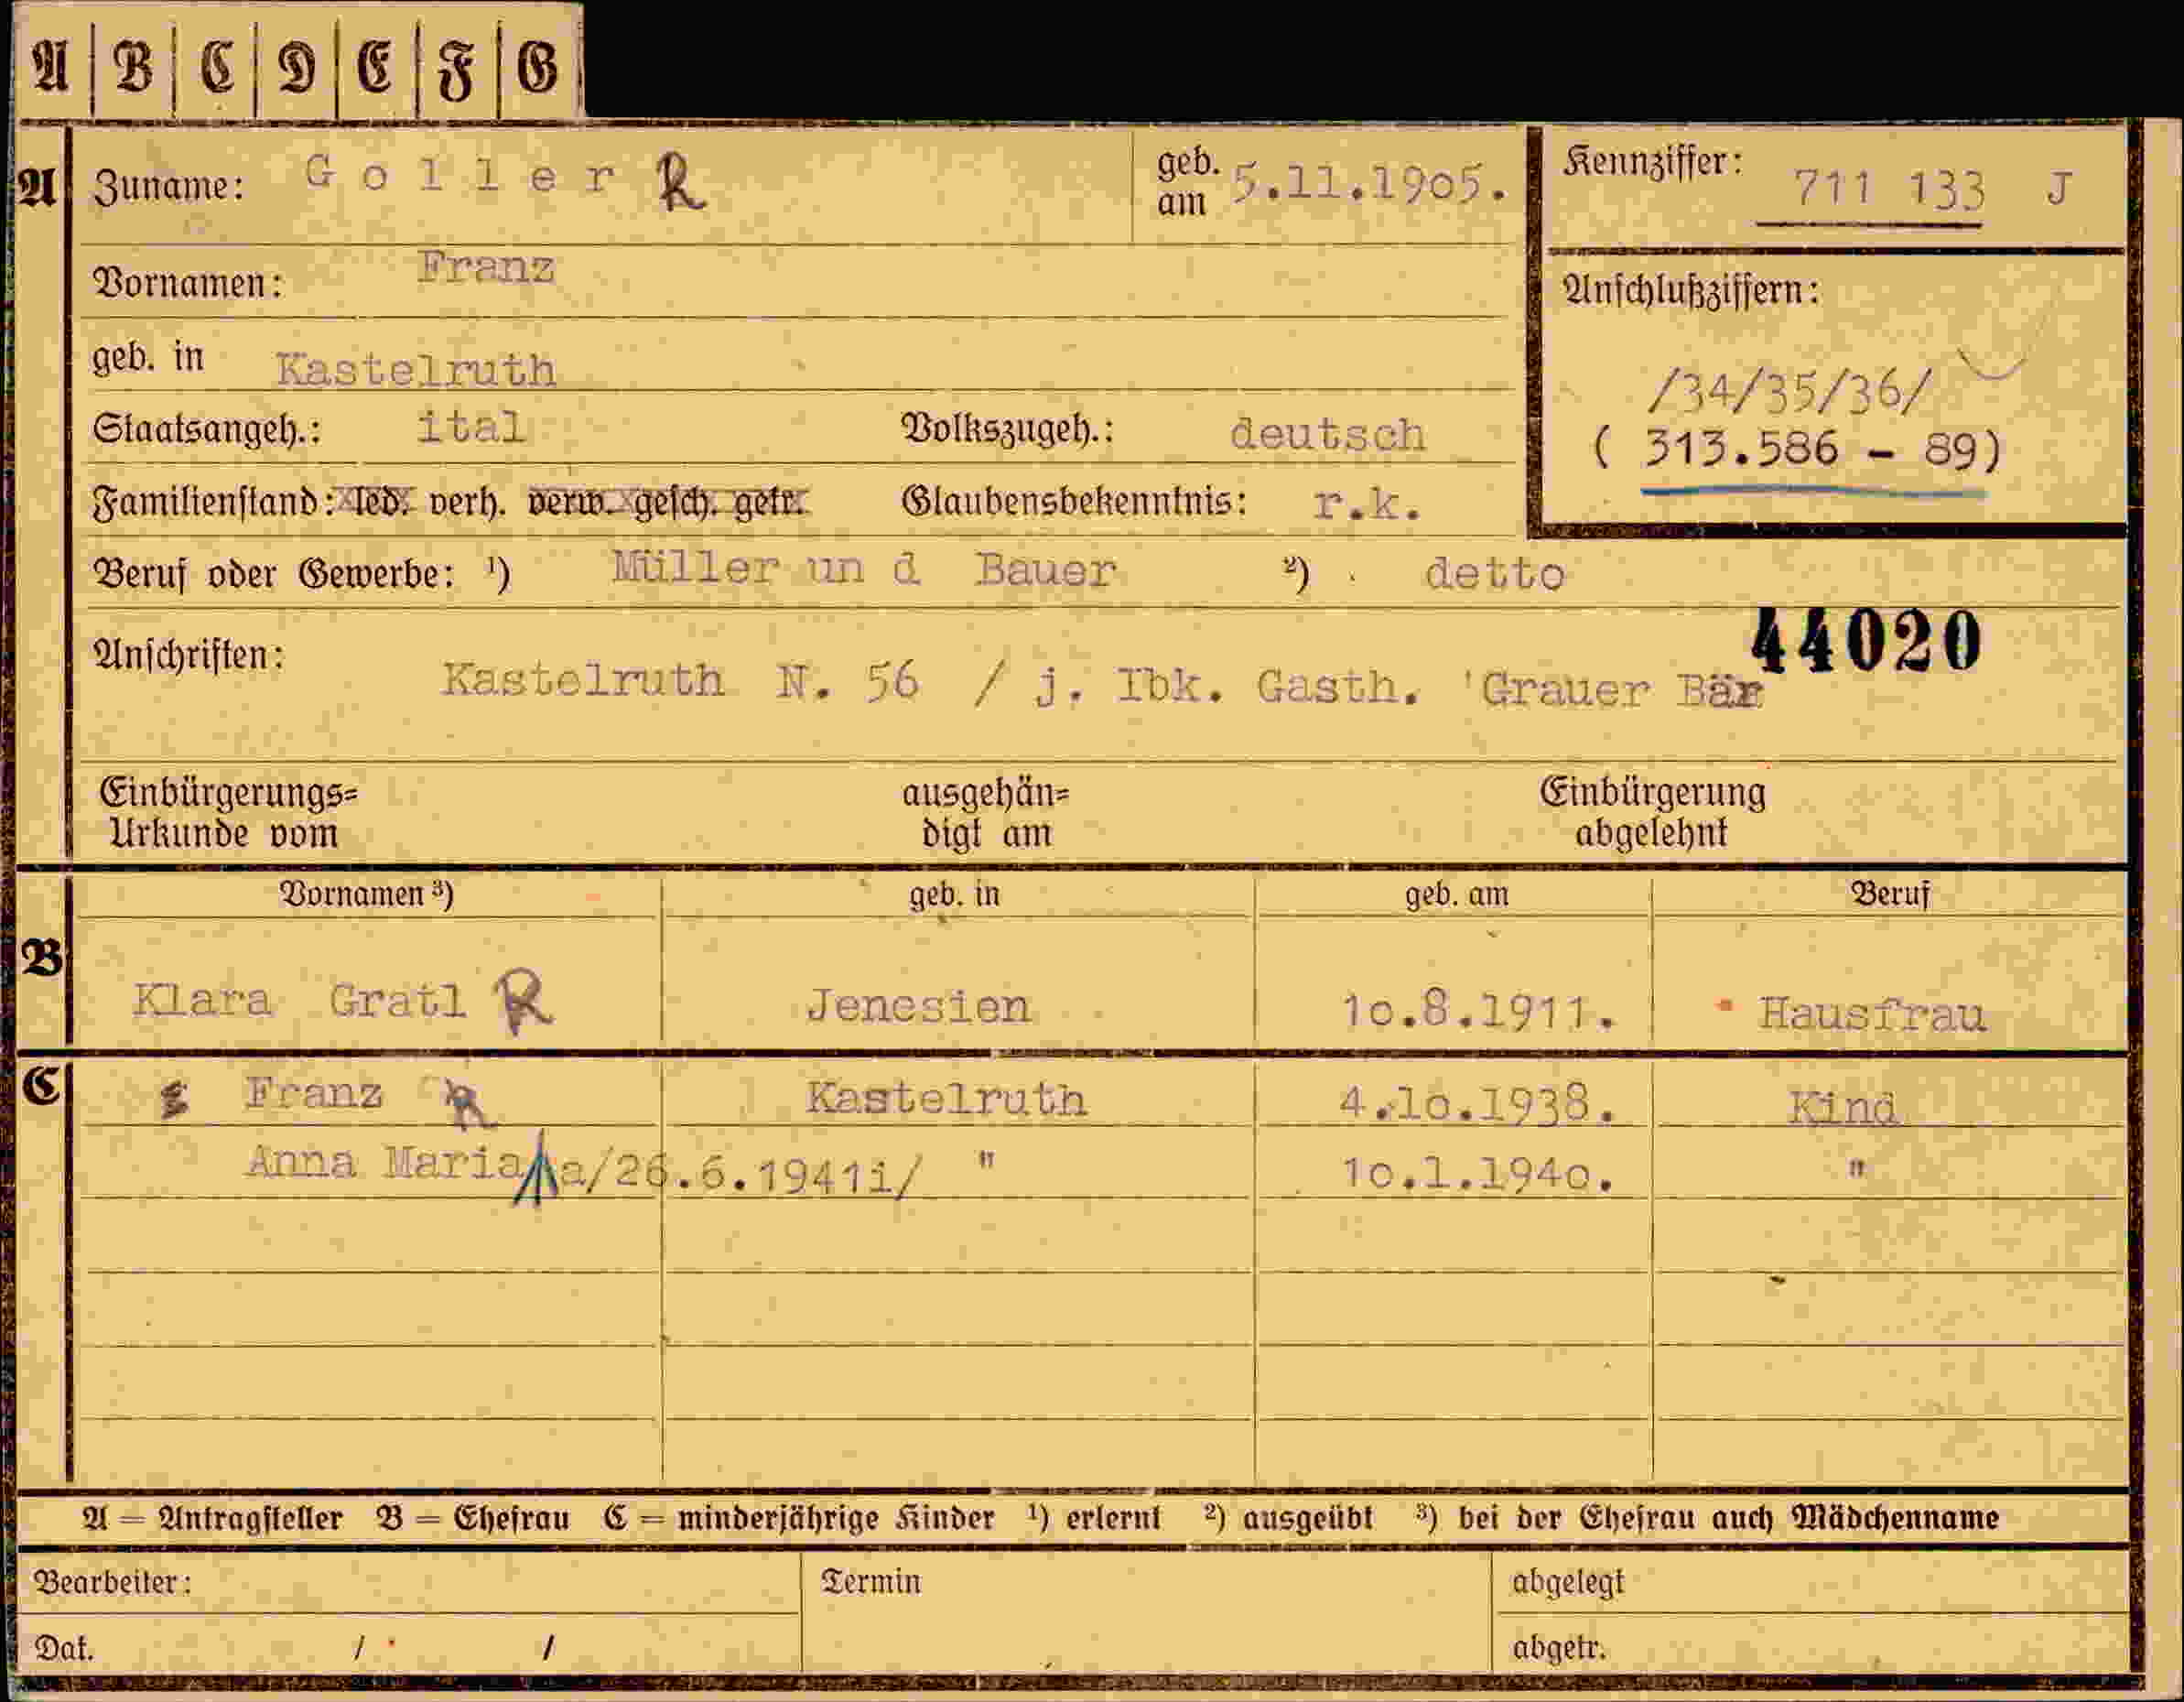 A B C D E F G
A Zuname: Goller R geb. am 5.11.1905. Kennziffer: 711 133 J
Vornamen: Franz
Anschlußziffern:
geb. in Kastelruth
/34/35/36/
Staatsangeh.: ital Volkszugeh.: deutsch
( 313.586 - 89)
Familienstand: led. verh. verw. gesch. getr. Glaubensbekenntnis: r.k.
Beruf oder Gewerbe: ¹) Müller un d Bauer ²) detto
44020
Anschriften: Kastelruth N. 56 / j. Ibk. Gasth. 'Grauer Bär
Einbürgerungs= ausgehän= Einbürgerung
Urkunde vom digt am abgelehnt
Vornamen ³) geb. in geb. am Beruf
B Klara Gratl R Jenesien 1o.8.1911. Hausfrau
C Franz R Kastelruth 4.1o.1938. Kind
Anna Maria a/26.6.1941i/ " 1o.1.194o. "
A = Antragsteller B = Ehefrau C = minderjährige Kinder ¹) erlernt ²) ausgeübt ³) bei der Ehefrau auch Mädchenname
Bearbeiter: Termin abgelegt
Dat. / / abgetr.